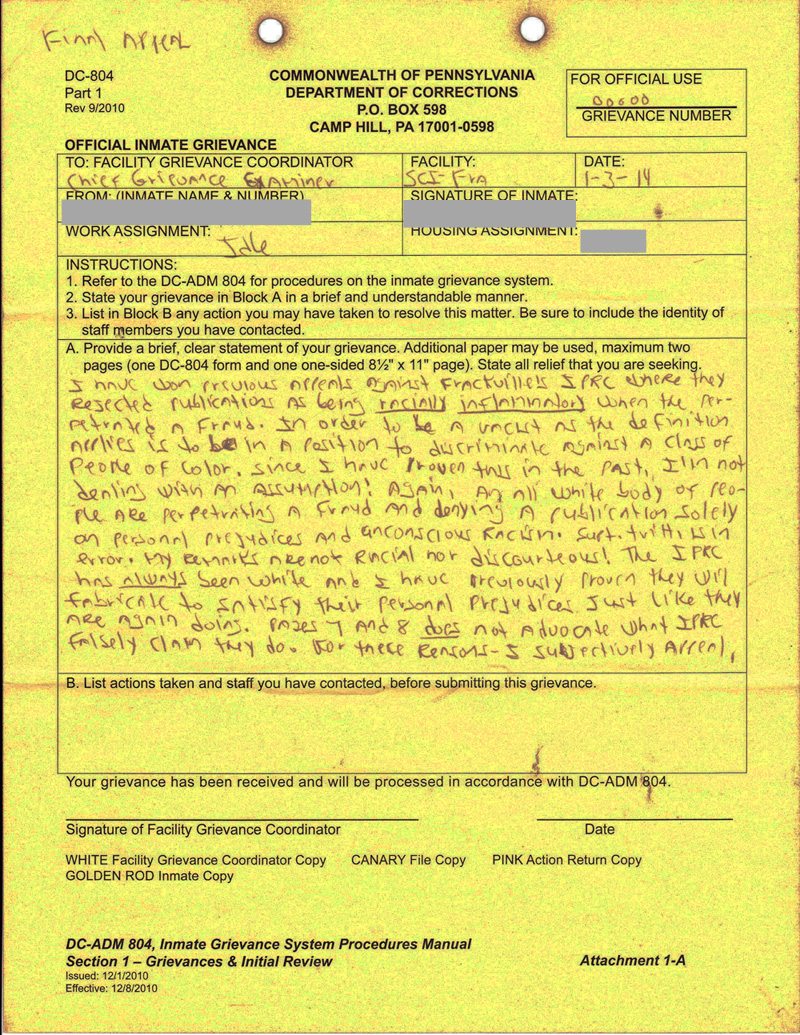 Final Appeal
DC-804
Part 1
Rev 9/2010
COMMONWEALTH OF PENNSYLVANIA
DEPARTMENT OF CORRECTIONS
P.O. BOX 598
CAMP HILL, PA 17001-0598
FOR OFFICIAL USE
00600
GRIEVANCE NUMBER
OFFICIAL INMATE GRIEVANCE
TO: FACILITY GRIEVANCE COORDINATOR
Chief Grievance Examiner
FACILITY:
SCI-Fra
DATE:
1-3-14
FROM: (INMATE NAME & NUMBER)
SIGNATURE OF INMATE:
WORK ASSIGNMENT:
Idle
HOUSING ASSIGNMENT:
INSTRUCTIONS:
1. Refer to the DC-ADM 804 for procedures on the inmate grievance system.
2. State your grievance in Block A in a brief and understandable manner.
3. List in Block B any action you may have taken to resolve this matter. Be sure to include the identity of
staff members you have contacted.
A. Provide a brief, clear statement of your grievance. Additional paper may be used, maximum two
pages (one DC-804 form and one one-sided 8½" x 11" page). State all relief that you are seeking.
I have won previous appeals against Frackville's IPRC where they
rejected publications as being racially inflammatory when the per-
petrated a fraud. In order to be a as the definition
applies is to be in a position to discriminate against a class of
people of color. Since I have proven this in the past, I'm not
dealing with an assumption! Again, an all white body of peo-
ple are perpetrating a fraud and denying a publication solely
on personal prejudices and unconscious racism. Supt. is in
error. My remarks are not racial nor discourteous! The IPRC
has always been white and I have previously proven they will
fabricate to satisfy their personal prejudices Just like they
are again doing. Pages 7 and 8 does not advocate what IPRC
falsely claim they do. For these reasons- I subjectively appeal,
B. List actions taken and staff you have contacted, before submitting this grievance.
Your grievance has been received and will be processed in accordance with DC-ADM 804.
Signature of Facility Grievance Coordinator
Date
WHITE Facility Grievance Coordinator Copy CANARY File Copy PINK Action Return Copy
GOLDEN ROD Inmate Copy
DC-ADM 804, Inmate Grievance System Procedures Manual
Section 1 – Grievances & Initial Review
Attachment 1-A
Issued: 12/1/2010
Effective: 12/8/2010